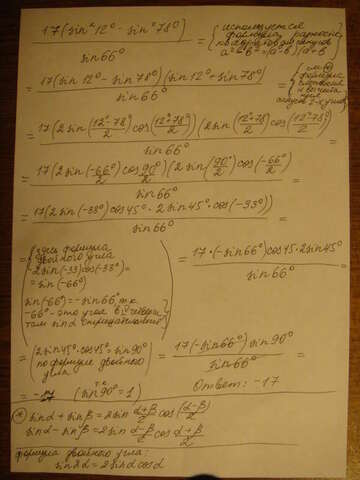 17(sin²12° - sin²78°) / sin66° = {используется формула разность квадратов
a²-b²=(a-b)(a+b)
= 17(sin12° - sin78°)(sin12° + sin78°) / sin66° =
= 17(2sin((12°-78°)/2)cos((12°+78°)/2))(2sin((12°+78°)/2)cos((12°-78°)/2)) / sin66° =
= 17(2sin(-66°)/2 cos 90°/2)(2sin(90°/2)cos(-66°/2)) / sin66° =
= 17(2sin(-33°)cos45°·2sin45°·cos(-33°)) / sin66° =
= (здесь формула
двойного угла
2sin(-33)cos(-33) =
= sin(-66°)
sin(-66°) = -sin66°, т.к.
-66° - это угол в 4 четверти
там sin отрицательный) = 17·(-sin66°)cos45·2sin45° / sin66° =
= (2sin45°·cos45° = sin90°
по формуле двойного
угла) = 17(-sin66°)sin90° / sin66° =
= -17 (т.к. sin90° = 1) Ответ: -17
* sinα + sinβ = 2sin (α+β)/2 cos (α-β)/2
sinα - sinβ = 2sin (α-β)/2 cos (α+β)/2
формула двойного угла:
sin2α = 2sinα cosα